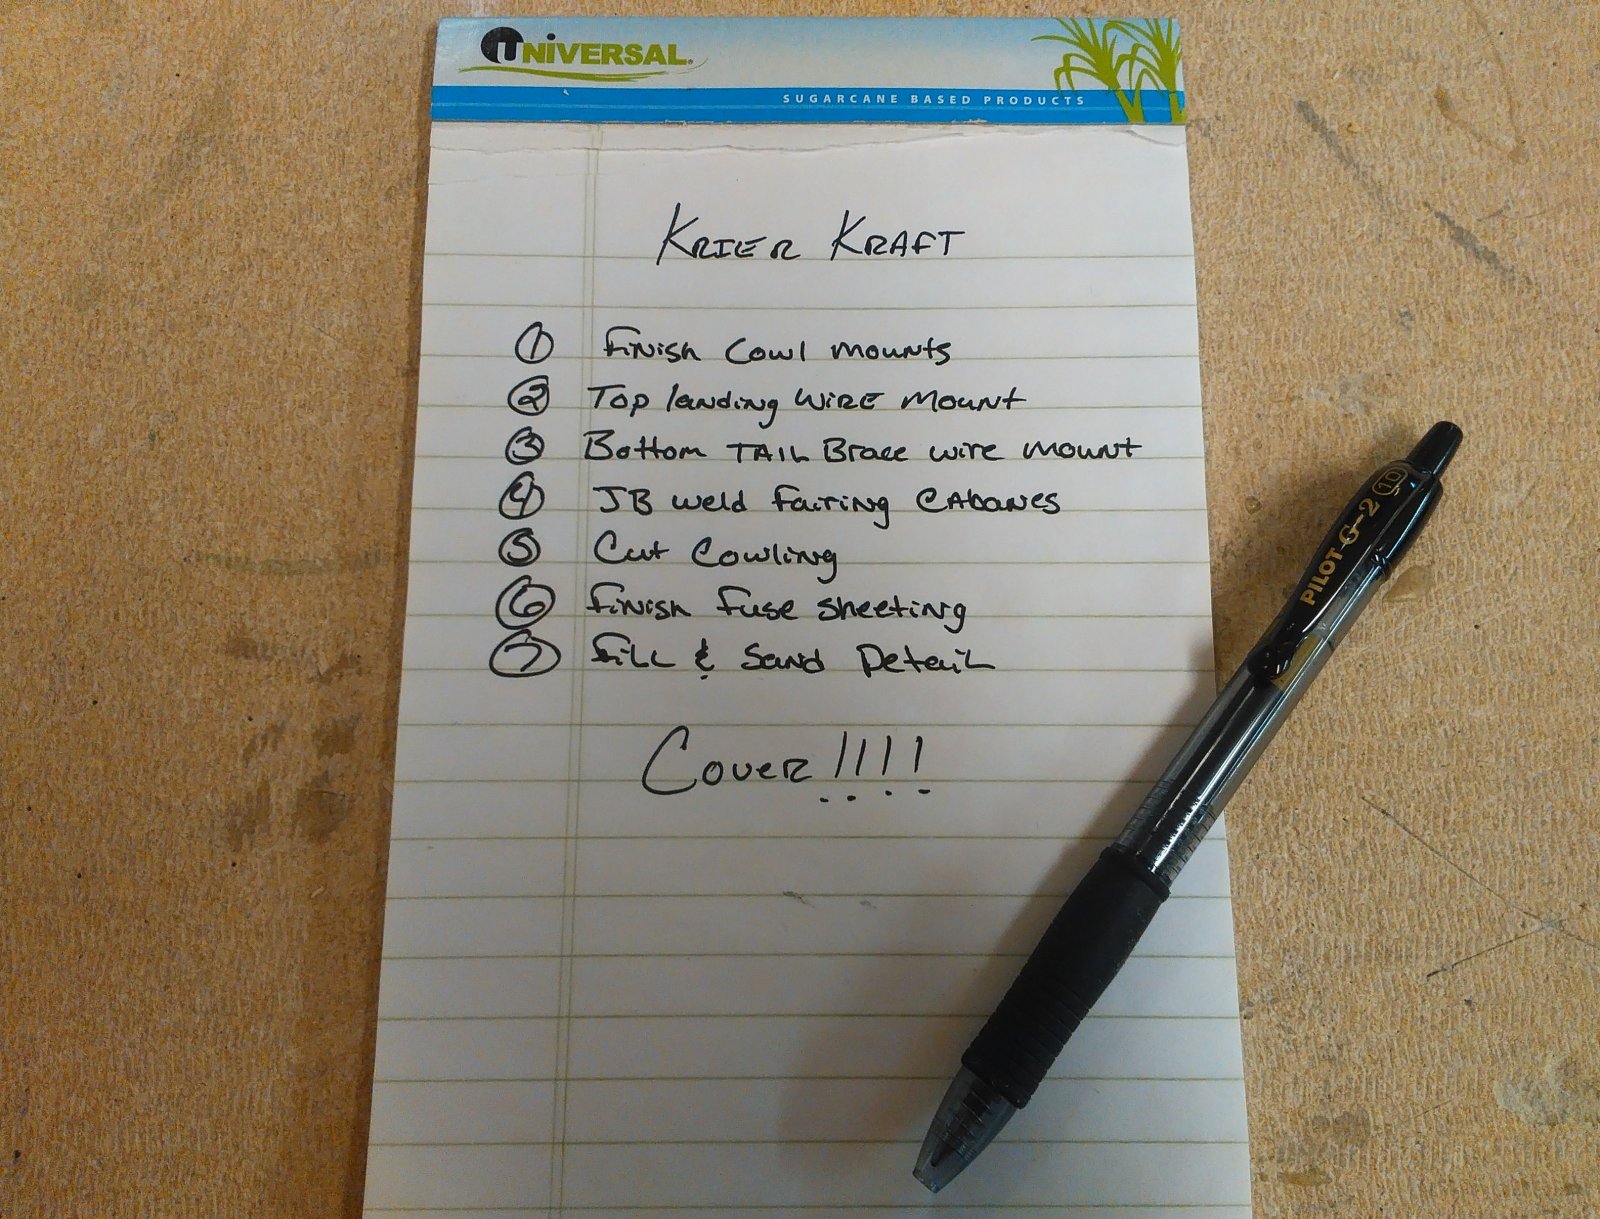 UNIVERSAL®
SUGARCANE BASED PRODUCTS
KRIER KRAFT
1 Finish Cowl Mounts
2 Top landing WIRE Mount
3 Bottom TAIL Brace wire mount
4 JB weld Fairing CAbanes
5 Cut Cowling
6 Finish Fuse sheeting
7 Fill & Sand Detail
Cover!!!!
PILOT G-2 10